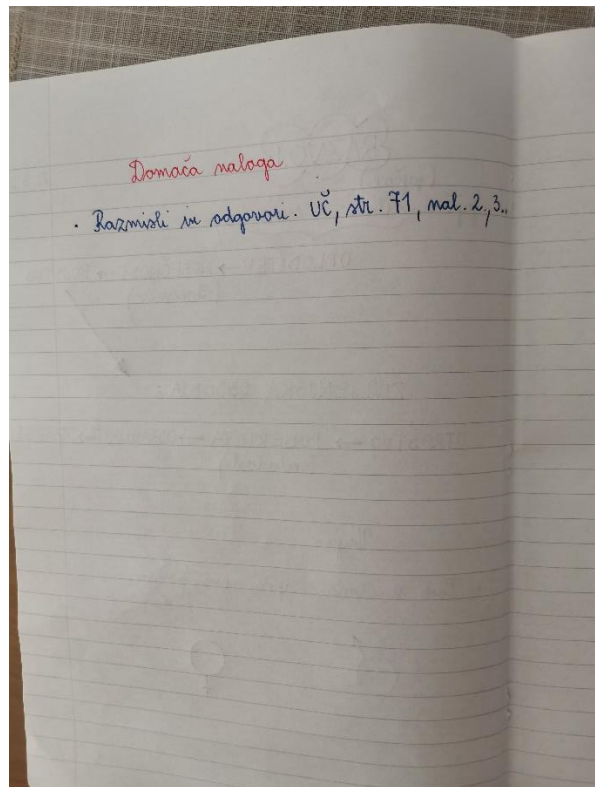 Domača naloga
· Razmisli in odgovori. UČ, str. 71, nal. 2.,3..